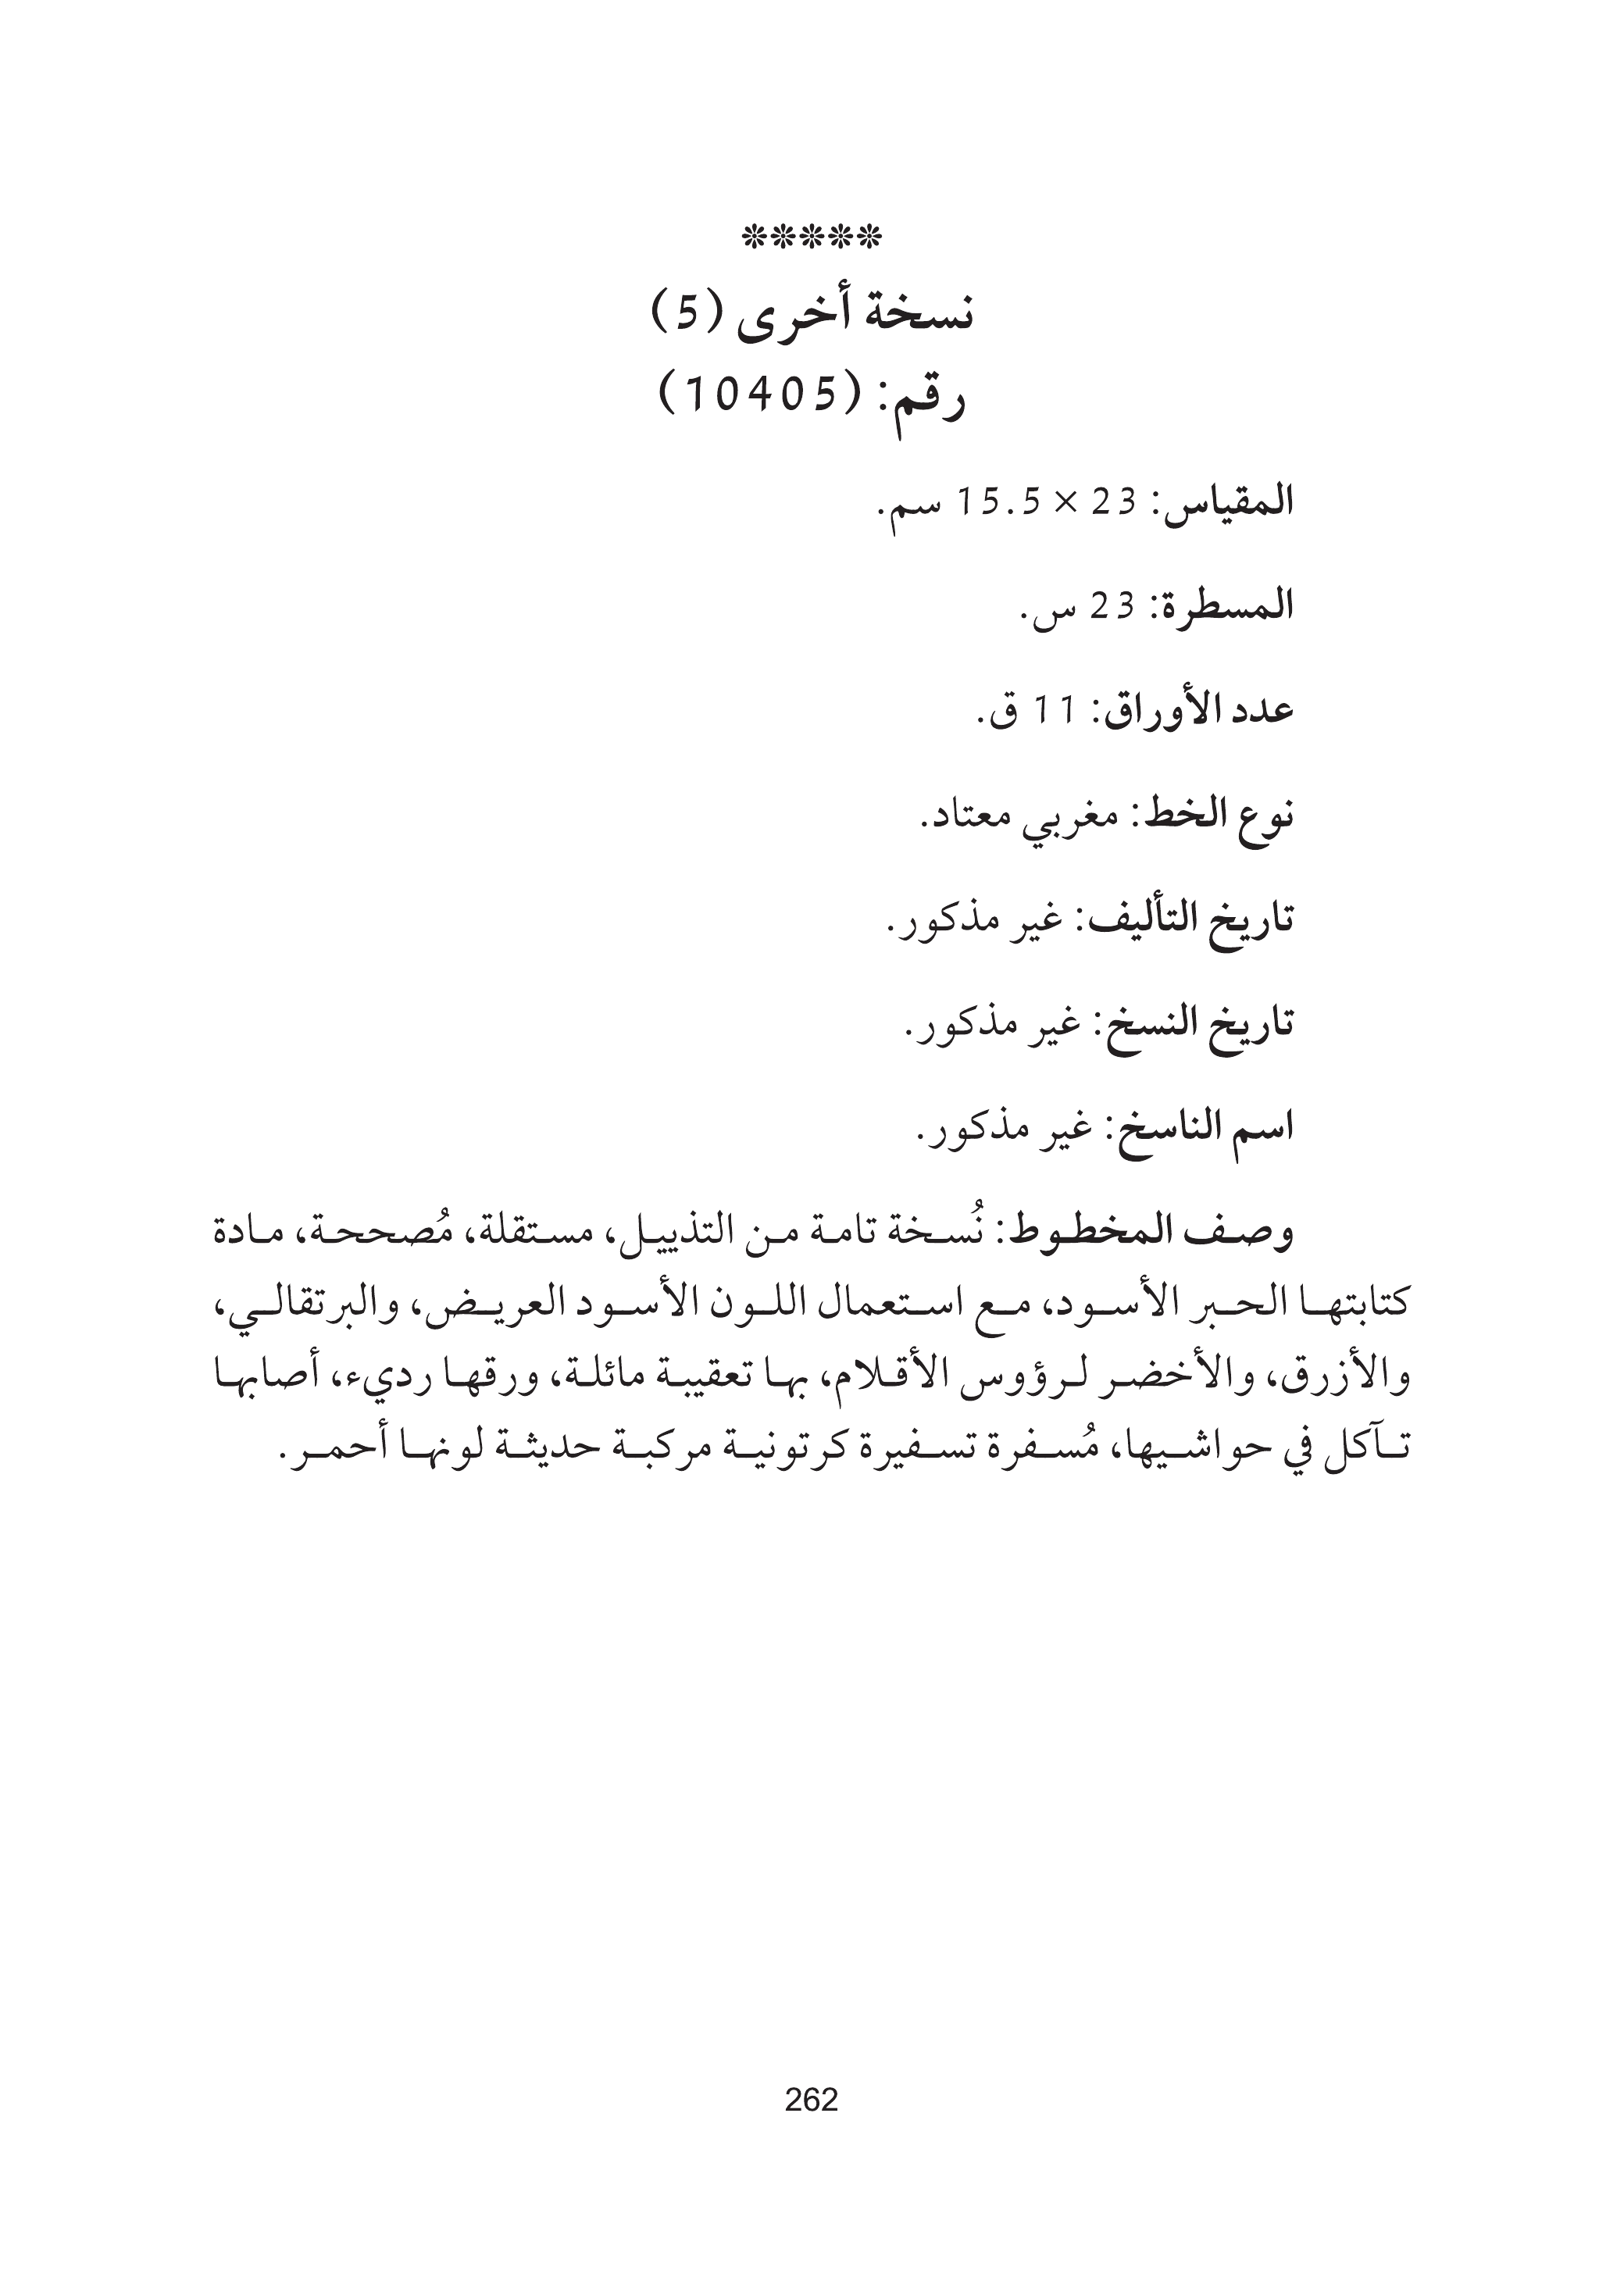 ❊❊❊❊❊
نسخة أخرى (5)
رقم: (10405)
المقياس: 23 × 15.5 سم.
المسطرة: 23 س.
عدد الأوراق: 11 ق.
نوع الخط: مغربي معتاد.
تاريخ التأليف: غير مذكور.
تاريخ النسخ: غير مذكور.
اسم الناسخ: غير مذكور.
وصف المخطوط: نُسخة تامة من التذييل، مستقلة، مُصححة، مادة
كتابتها الحبر الأسود، مع استعمال اللون الأسود العريض، والبرتقالي،
والأزرق، والأخضر لرؤوس الأقلام، بها تعقيبة مائلة، ورقها رديء، أصابها
تآكل في حواشيها، مُسفرة تسفيرة كرتونية مركبة حديثة لونها أحمر.
262